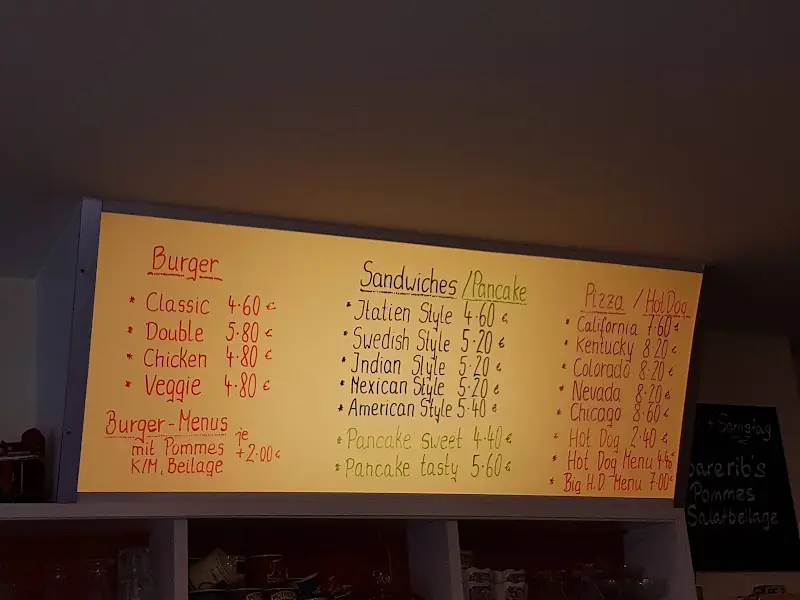 Burger
* Classic 4.60 €
* Double 5.80 €
* Chicken 4.80 €
* Veggie 4.80 €
Burger-Menus
mit Pommes je
K/M, Beilage +2.00€
Sandwiches / Pancake
* Itatien Style 4.60 €
* Swedish Style 5.20 €
* Indian Style 5.20 €
* Mexican Style 5.20 €
* American Style 5.40 €
* Pancake sweet 4.40 €
* Pancake tasty 5.60 €
Pizza / Hot Dog
* California 7.60 €
* Kentucky 8.20 €
* Colorado 8.20 €
* Nevada 8.20 €
* Chicago 8.60 €
* Hot Dog 2.40 €
* Hot Dog Menu 4.40 €
* Big H.D. Menu 7.00€
Samstag
parerib's
Pommes
Salatbeilage